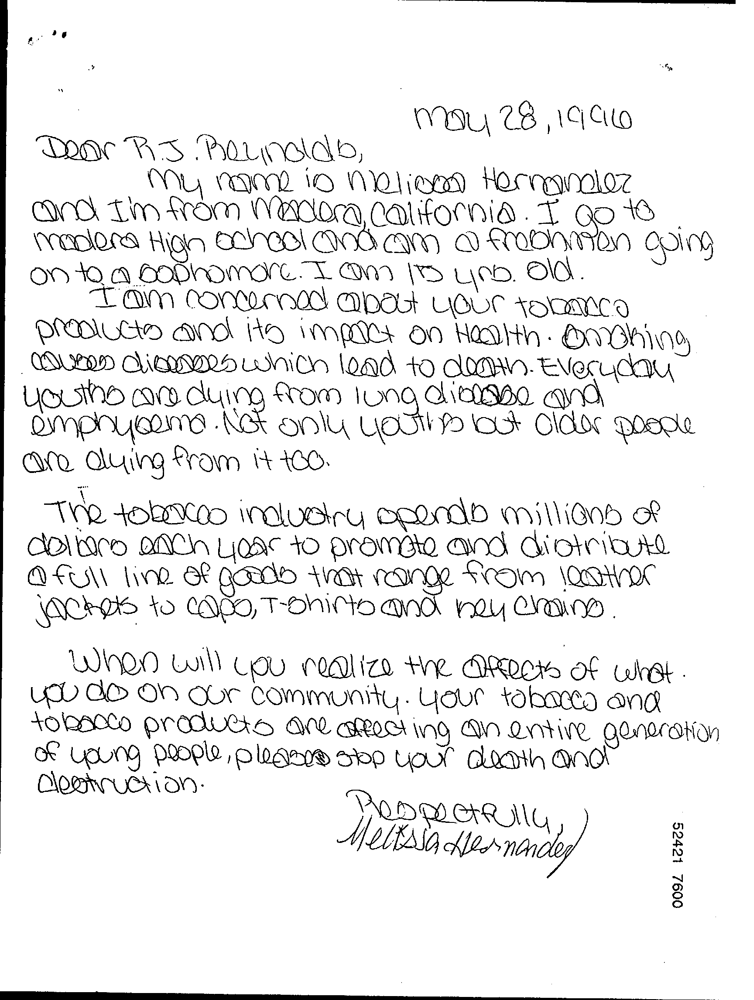 May 28, 1996
Dear R.J. Reynolds,
My name is Melissa Hernandez
and I'm from Madera, California. I go to
madera High school and am a freshmen going
on to a sophomore. I am 15 yrs. old.
I am concerned about your tobacco
products and its impact on Health. Smoking
causes diseases which lead to death. Everyday
youths are dying from lung disease and
emphysema. Not only youths but older people
are dying from it too.
The tobacco industry spends millions of
dollars each year to promote and distribute
a full line of goods that range from leather
jackets to caps, T-shirts and key chains.
When will you realize the affects of what
you do on our community. Your tobacco and
tobacco products are affecting an entire generation
of young people, please stop your death and
destruction.
Respectfully,
Melissa Hernandez
52421 7600